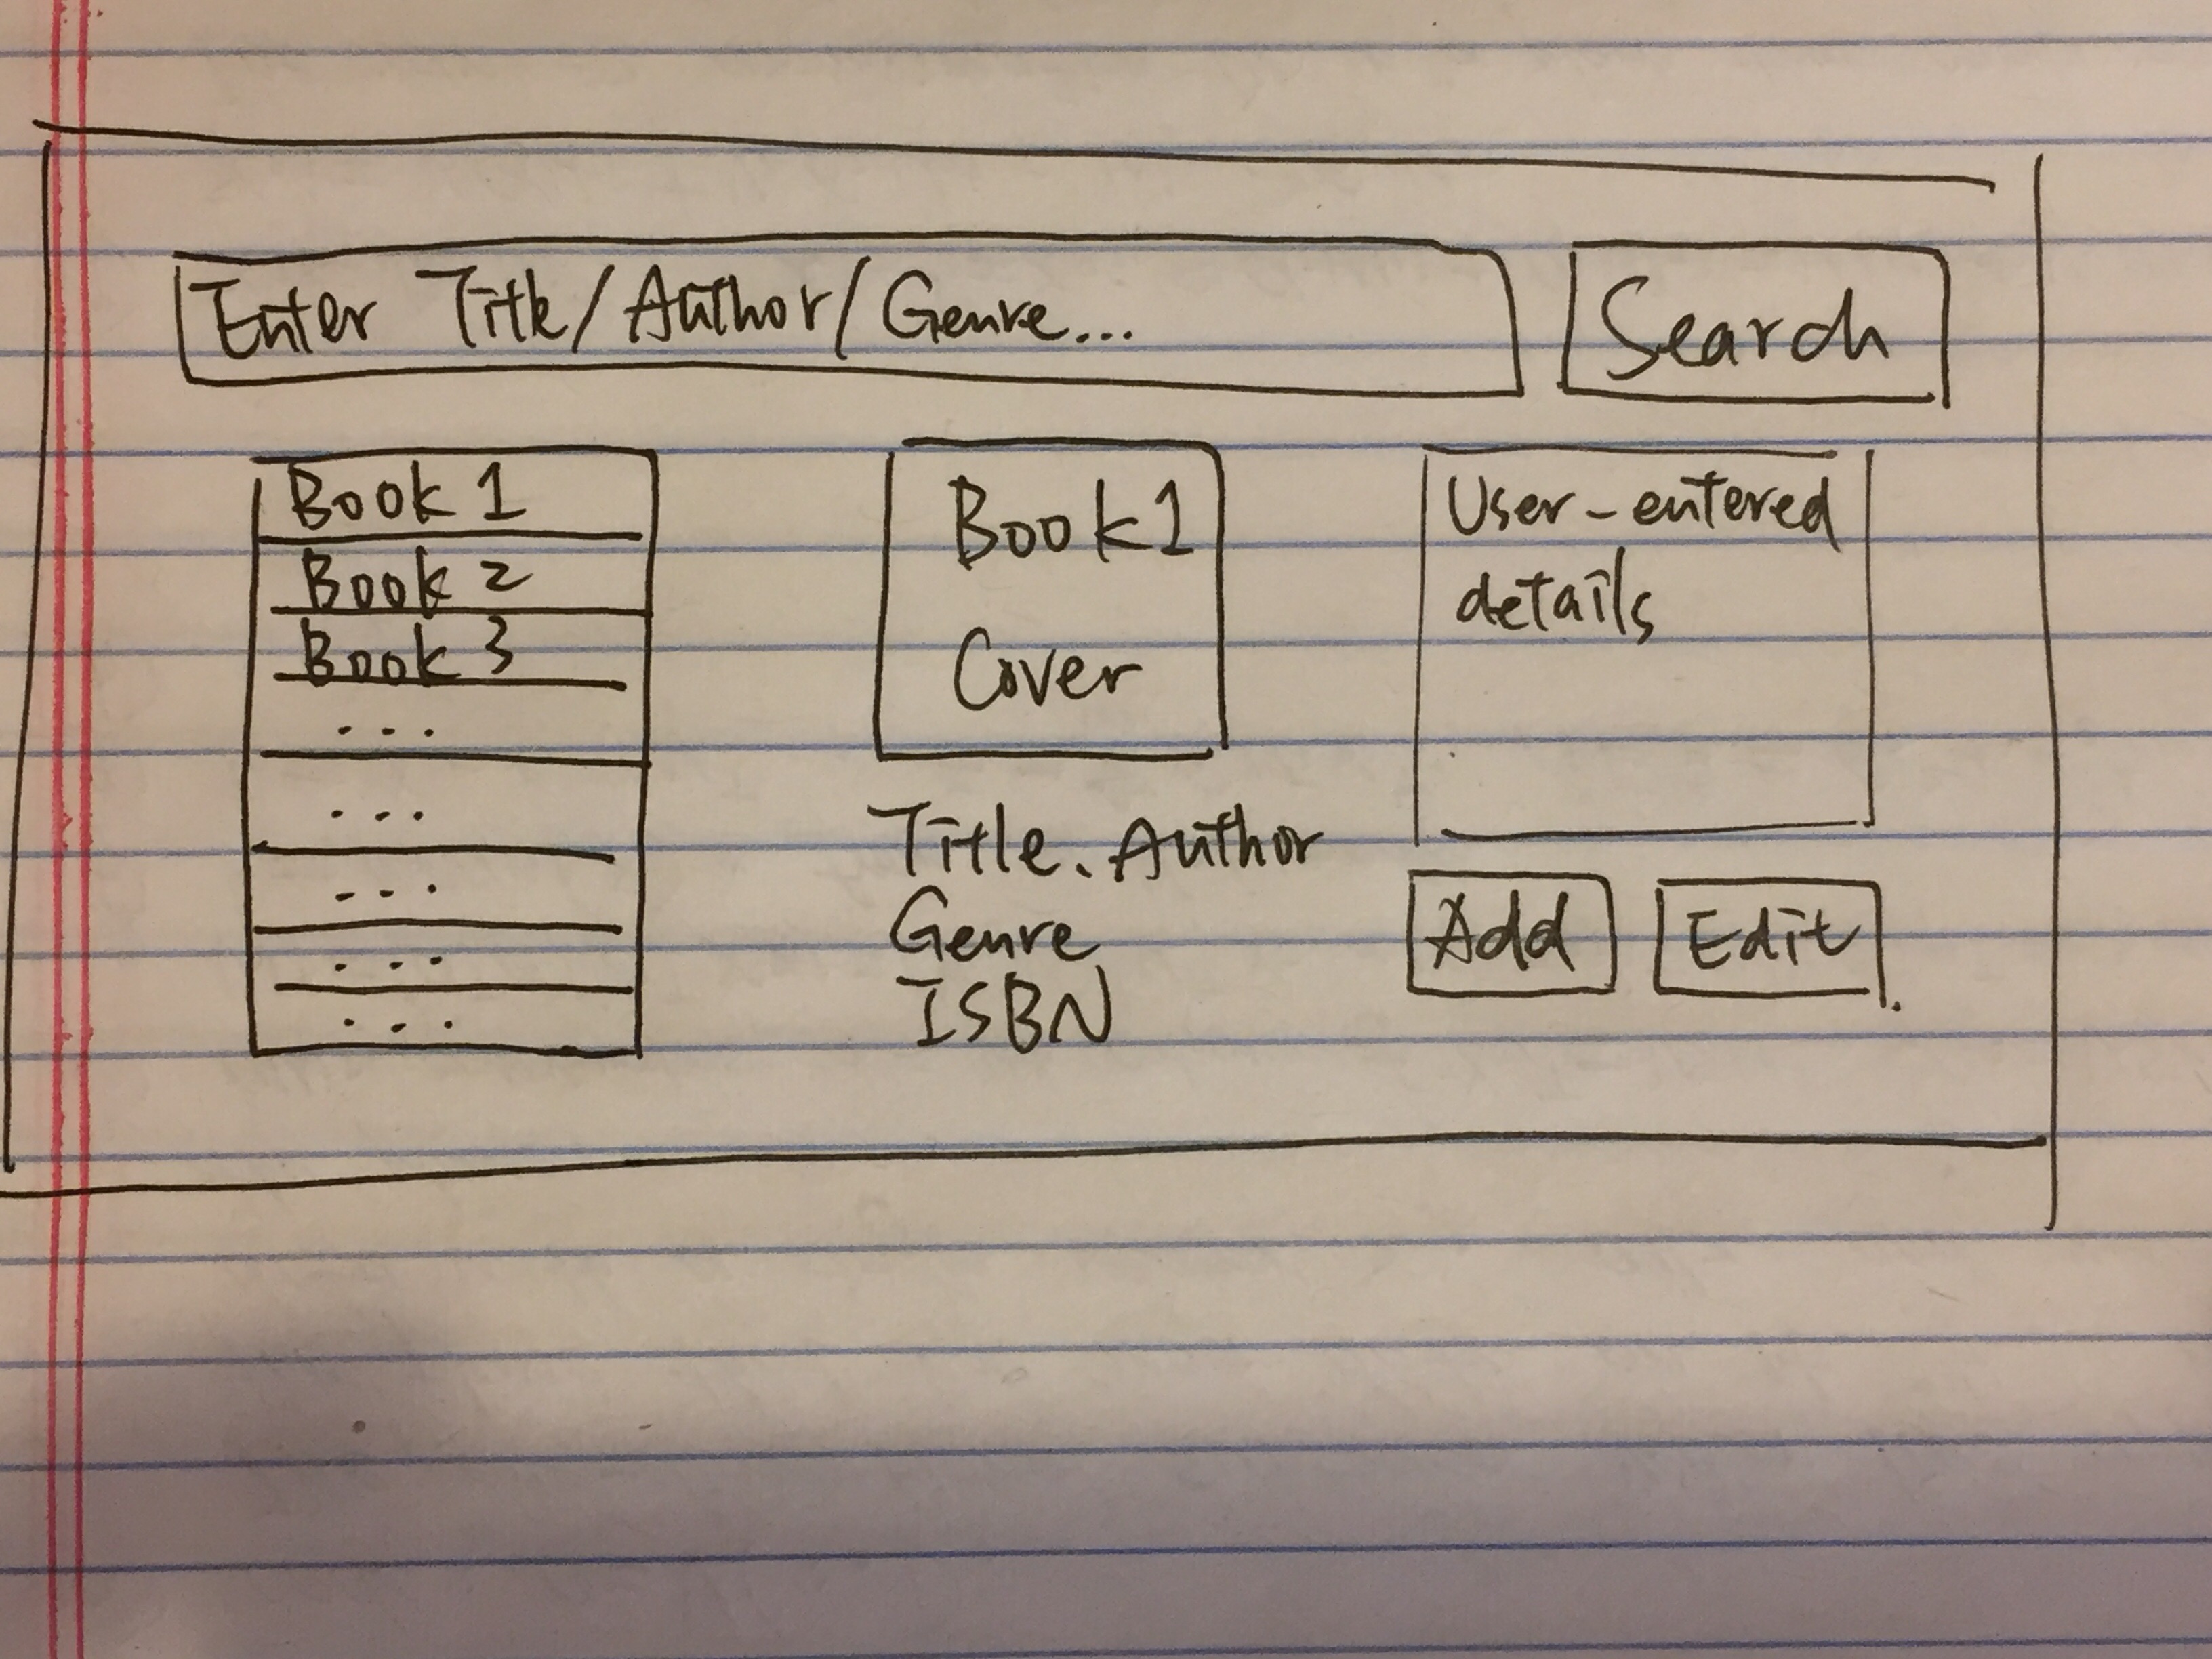 Enter Title/Author/Genre...
Search
Book 1
Book 2
Book 3
...
...
...
...
...
Book 1
Cover
Title. Author
Genre
ISBN
User-entered
details
Add
Edit